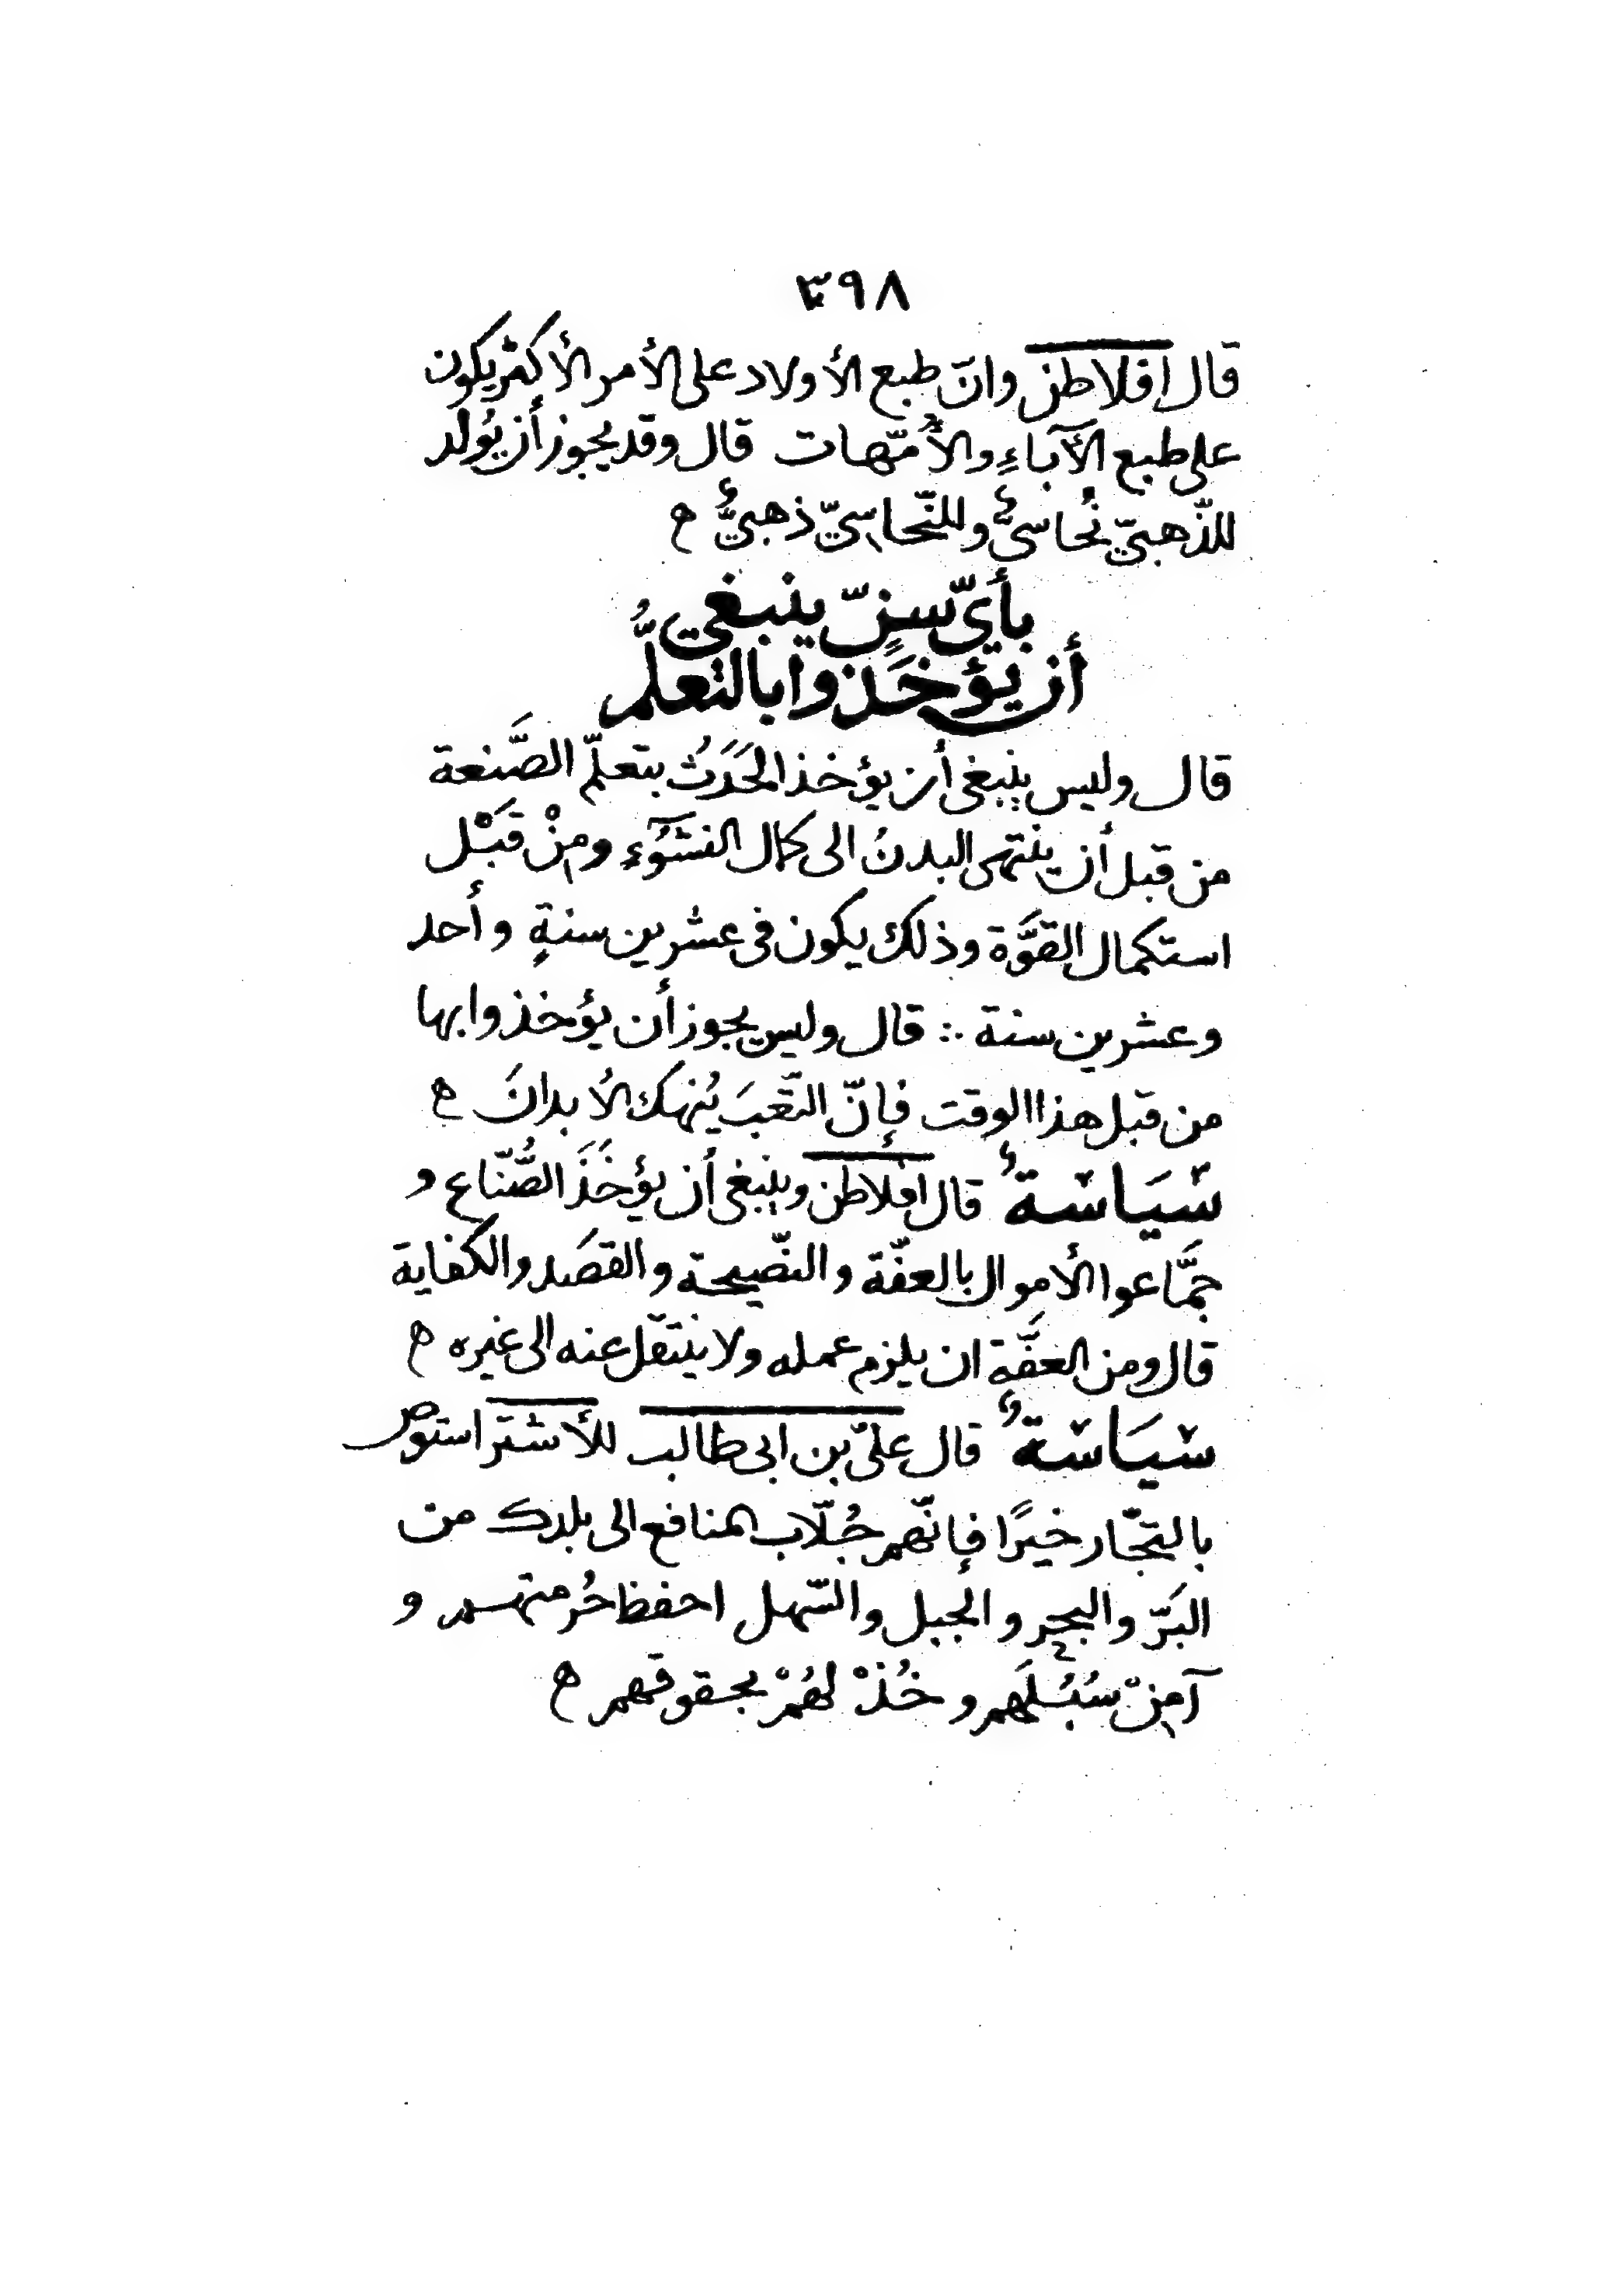 ٣٩٨
قال افلاطن وانّ طبع الأولاد على الأمر الأكثر يكون
على طبع الآباءِ والأُمّهات قال وقد يجوز أن يُولد
للذّهبيّ نُحاسيٌّ وللنّحاسيّ ذهبيٌّ ه
بأيّ سنٍّ ينبغي
أن يؤخَذوا بالتعلُّم
قال وليس ينبغي أن يؤخذ الحَدَثُ بتعلّم الصَّنعة
من قبل أن ينتهى البدنُ الى كمال النشوْءِ ومِنْ قَبْل
استكمال القوَّة وذلك يكون فى عشرين سنةٍ وأحد
وعشرين سنة ∴ قال وليس يجوز أن يؤخذوا بها
من قبل هذا الوقت فإنّ التّعبَ يُنهك الأبدانَ ه
سيَاسةٌ قال افلاطن وينبغى أن يؤخَذَ الصُّنّاع و
جمَّاعوا الأموال بالعفّة والنّصيحة والقصَد والكفاية
قال ومن العفَّةِ ان يلزم عمله ولا ينتقل عنه الى غيره ه
سيَاسةٌ قال علىّ بن ابى طالب للأشتر استوص
بالتجّار خيرًا فإنّهم جُلّاب المنافع الى بلدك من
البَرّ والبحر والجبل والسّهل احفظ حُرمتهم و
آمِنْ سُبُلَهم وخُذْ لهُمْ بحقوقهم ه